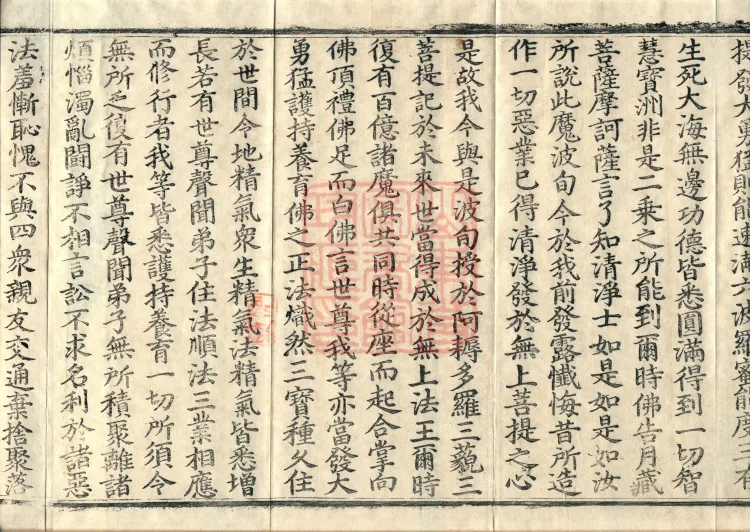 發大勇猛則能速滿六波羅蜜能度三有
生死大海無邊功德皆悉圓滿得到一切智
慧寶洲非是二乘之所能到爾時佛告月藏
菩薩摩訶薩言了知清淨士如是如是如汝
所說此魔波旬今於我前發露懺悔昔所造
作一切惡業已得清淨發於無上菩提之心
是故我今與是波旬授於阿耨多羅三藐三
菩提記於未來世當得成於無上法王爾時
復有百億諸魔俱共同時從座而起合掌向
佛頂禮佛足而白佛言世尊我等亦當發大
勇猛護持養育佛之正法熾然三寶種久住
於世間令地精氣衆生精氣法精氣皆悉增
長若有世尊聲聞弟子住法順法三業相應
而修行者我等皆悉護持養育一切所須令
無所乏復有世尊聲聞弟子無所積聚離諸
煩惱濁亂鬪諍不相言訟不求名利於諸惡
法羞慚恥愧不與四衆親友交通棄捨聚落